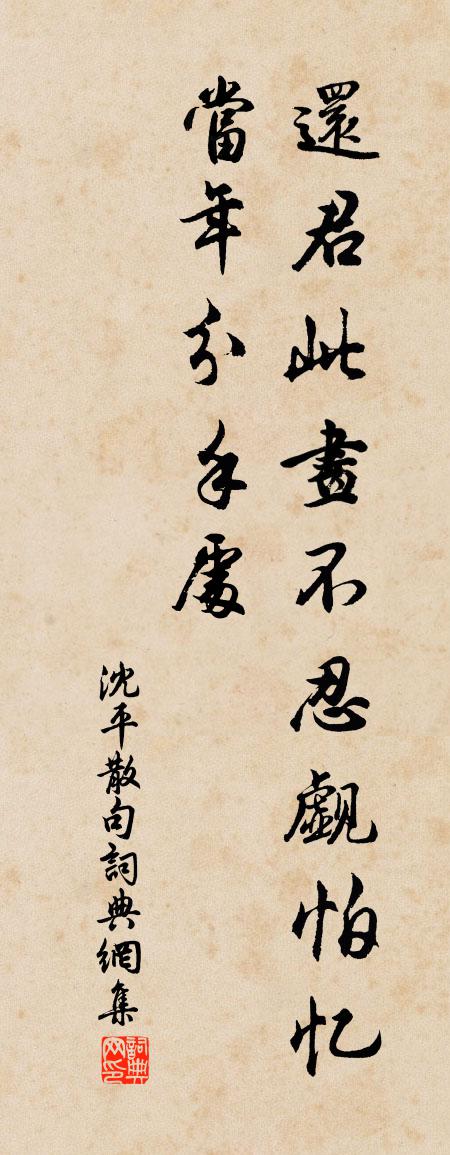 還君此畫不忍覷怕忆
當年分手處
沈平散句詞典網集
詞典网印